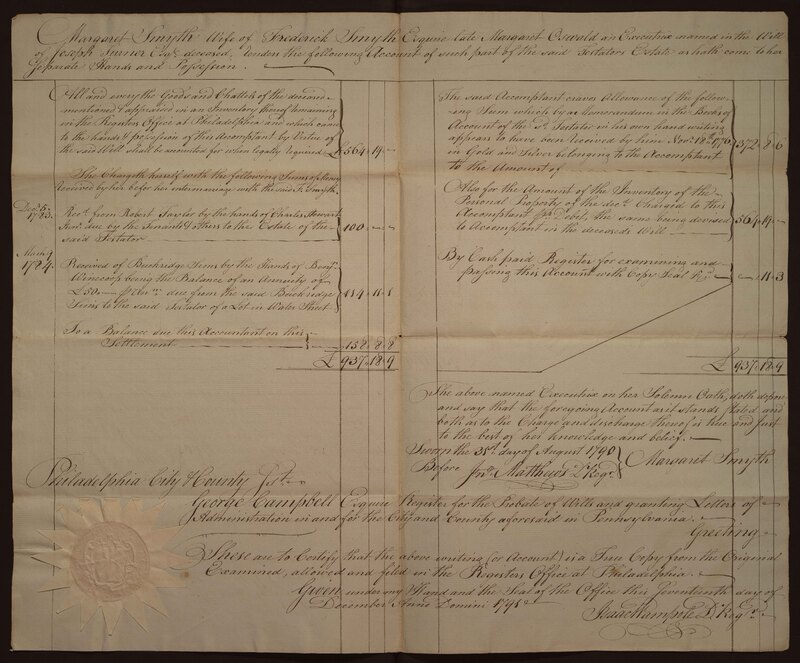 Margaret Smyth Wife of Frederick Smyth Esquire late Margaret Oswald an Executrix named in the Will
of Joseph Turner Esqr. deceased, renders the following Account of such part of the said Testators Estate as hath come to her
separate Hands and Possession.
All and every the Goods and Chattels of the deceased
mentioned & appraised in an Inventory thereof remaining
in the Registers Office at Philadelphia and which came
to the hands & possession of this Accomptant by Virtue of
the said Will shall be accounted for when legally required £564 " 19 " -
She Chargeth herself with the following Sums of Money
received by her before her intermarriage with the said F. Smyth.
Decr. 5.
1783.
Recd. from Robert Taylor by the hands of Charles Stewart
Junr. due by the Tenants & others to the Estate of the
said Testator 100 " -
1784.
Received of Buckridge Sims by the Hands of Benjn.
Wynecoop being the Balance of an Annuity of
£50 due from the said Buckridge
Sims to the said Testator of a Lot in Water Street 114 " 11 " 1
To a Balance due this Accountant on this
Settlement 158 " 8 " 8
£937 " 18 " 9
The said Accomptant craves Allowance of the follow-
ing Sum which by a Memorandum in the Books of
Account of the sd. Testator in his own hand writing
appears to have been received by him Novr. 18th 1776
in Gold and Silver belonging to the Accomptant
to the Amount of 372 " 8 " 6
Also for the Amount of the Inventory of the
Personal Property of the decd. Charged to this
Accomptant pr. Debet, the same being devised
to Accomptant in the deceaseds Will 564 " 19 " -
By Cash paid Register for examining and
passing this Account with Copy Seal &c. - " 11 " 3
£937 " 18 " 9
The above named Executrix on her Solemn Oath, doth depose
and say that the foregoing Account as it stands stated and
both as to the Charge and discharge thereof is true and just
to the best of her knowledge and belief.
Sworn the 31st. day of August 1790
Before Jno. Matthews D. Regr. Margaret Smyth
Philadelphia City & County Sst.
George Campbell Esquire Register for the Probate of Wills and granting Letters of
Administration in and for the City and County aforesaid in Pennsylvania.
Greeting
These are to Certify that the above writing (or Account) is a True Copy from the Original
Examined, allowed and filed in the Registers Office at Philadelphia.
Given under my Hand and the Seal of the Office this Seventeenth day of
December Anno Domini 1795
Isaac Wampole D. Regr.